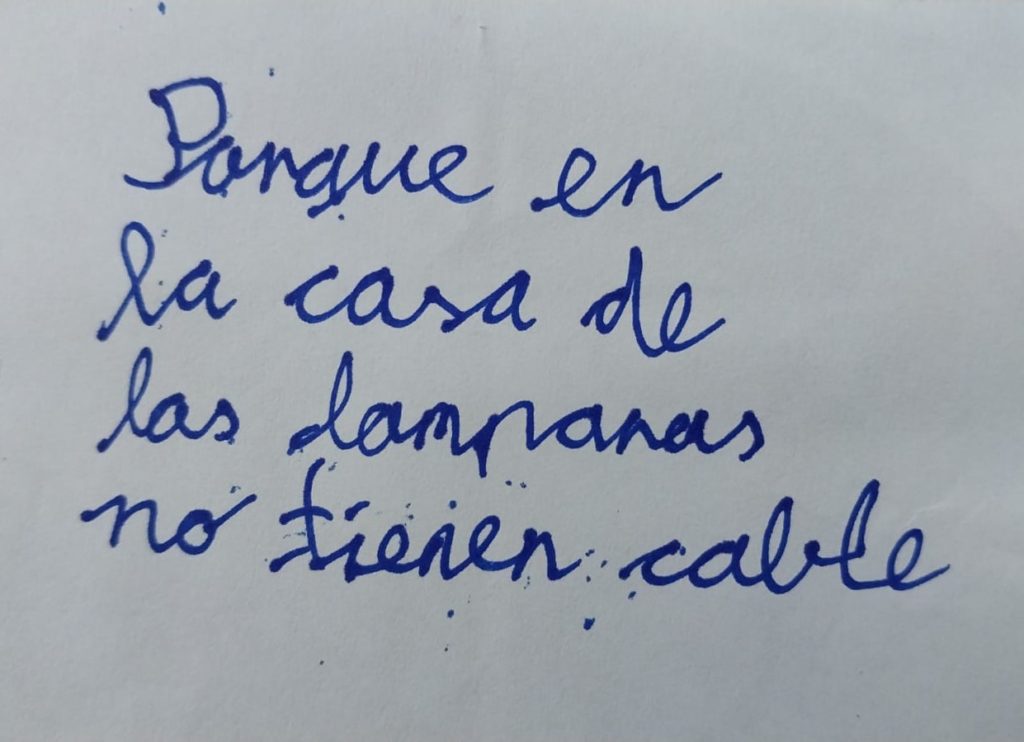 Porque en
la casa de
las lamparas
no tienen cable